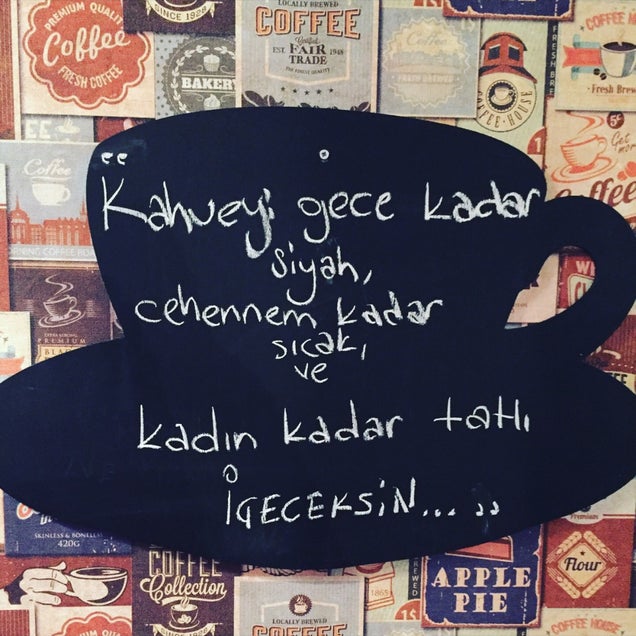 PREMIUM QUALITY
Coffee
FRESH COFFEE
SINCE 1920
BAKERY
LOCALLY BREWED
COFFEE
EST. FAIR 1948
TRADE
COFFEE HOUSE
Fresh Brew
5¢
Get
1
Coffee
"Kahveyi gece kadar
siyah,
cehennem kadar
sıcak,
ve
kadın kadar tatlı
İÇECEKSİN... "
PREMIUM
SKINLESS & BONELESS
420G
COFFEE
Collection
LOCALLY BREWED
COFFEE
1865
15
APPLE
PIE
Flour
COFFEE HOUSE